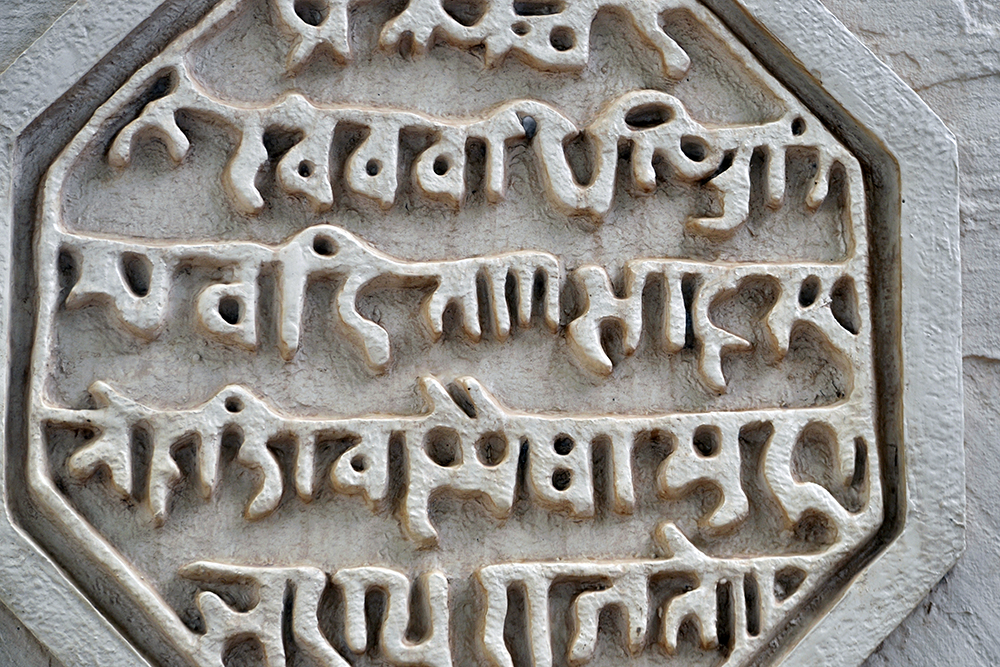 लेखेव वर्धिष्णुर्वि
श्ववंदिता शाहसू
नोः शिवस्यैषा मुद्रा
भद्राय राजते